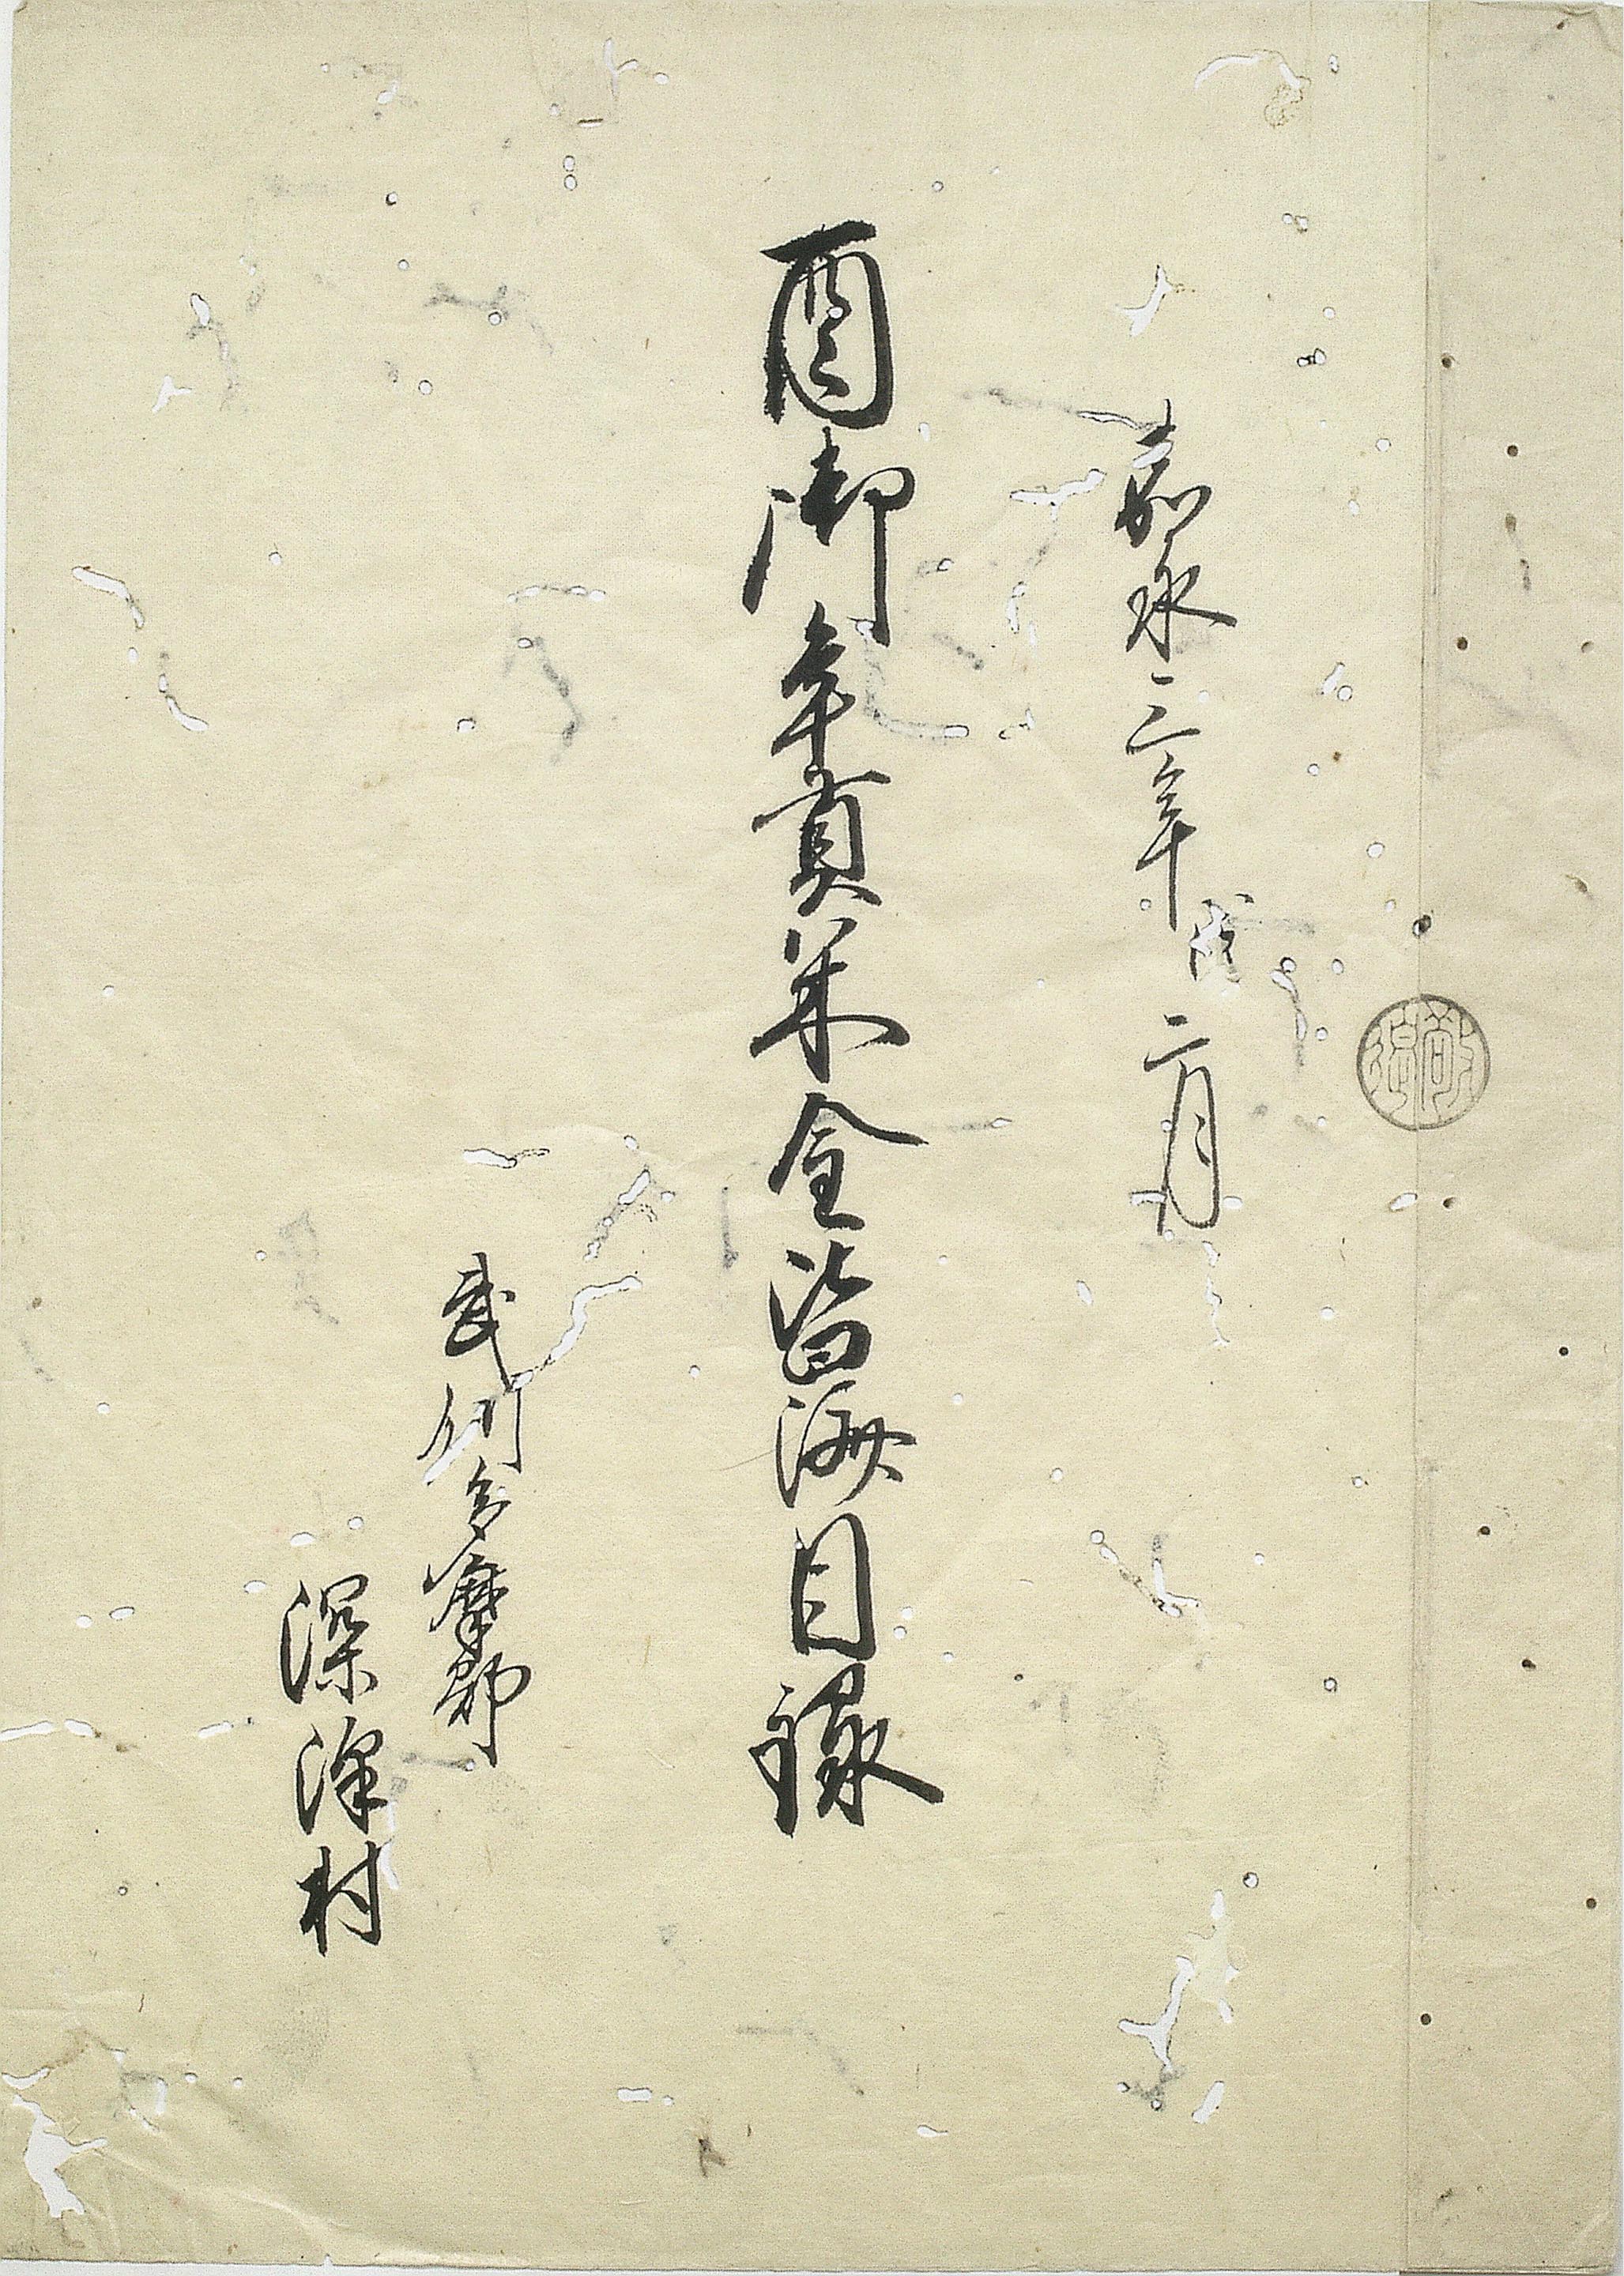 嘉永三年戌二月
酉御年貢米金皆済目録
武州多摩郡
深澤村